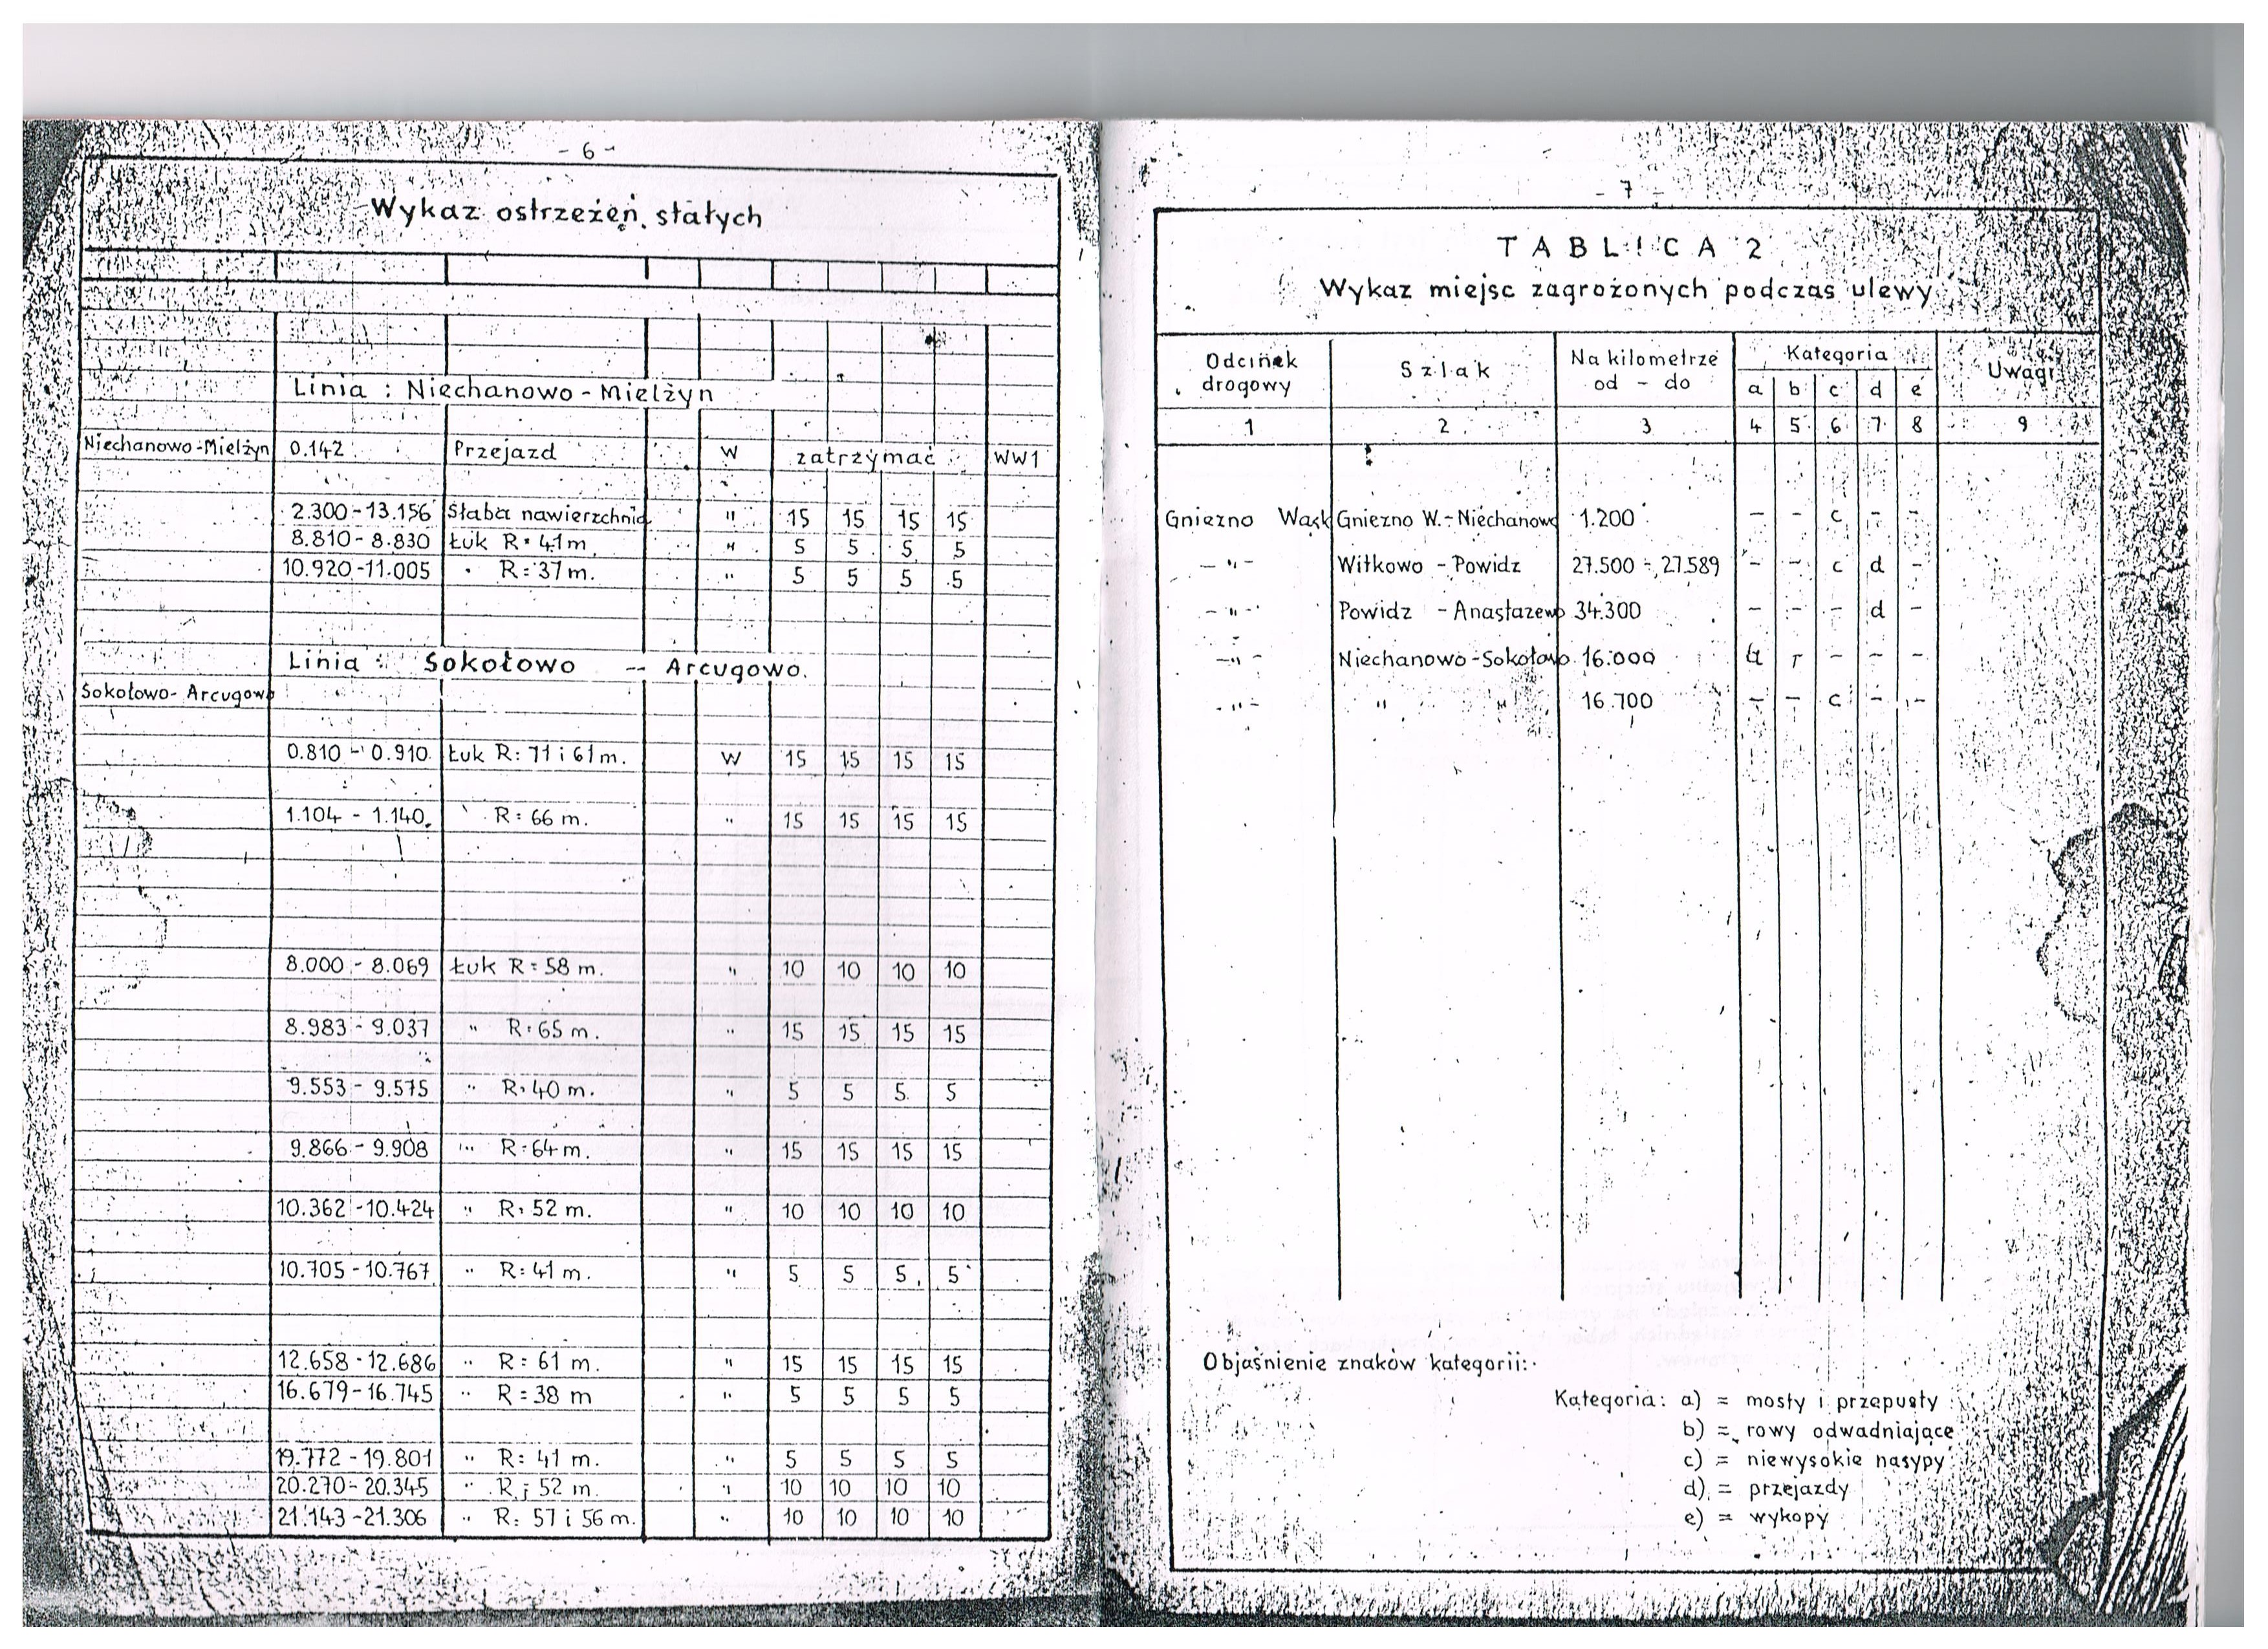 - 6 -
Wykaz ostrzeżeń stałych
Linia : Niechanowo - Mielżyn
Niechanowo-Mielżyn 0.142 Przejazd W zatrzymać WW1
2.300 - 13.156 Słaba nawierzchnia " 15 15 15 15
8.810 - 8.830 Łuk R = 41 m " 5 5 5 5
10.920 - 11.005 " R = 37 m. " 5 5 5 5
Linia : Sokołowo - Arcugowo.
Sokołowo - Arcugowo
0.810 - 0.910 Łuk R = 71 i 61 m. W 15 15 15 15
1.104 - 1.140 " R = 66 m. " 15 15 15 15
8.000 - 8.069 Łuk R = 58 m. " 10 10 10 10
8.983 - 9.037 " R = 65 m. " 15 15 15 15
9.553 - 9.575 " R = 40 m. " 5 5 5 5
9.866 - 9.908 " R = 64 m. " 15 15 15 15
10.362 - 10.424 " R = 52 m. " 10 10 10 10
10.705 - 10.767 " R = 41 m. " 5 5 5 5
12.658 - 12.686 " R = 61 m. " 15 15 15 15
16.679 - 16.745 " R = 38 m " 5 5 5 5
19.772 - 19.801 " R = 41 m. " 5 5 5 5
20.270 - 20.345 " R = 52 m. " 10 10 10 10
21.143 - 21.306 " R = 57 i 56 m. " 10 10 10 10
- 7 -
TABLICA 2
Wykaz miejsc zagrożonych podczas ulewy
Odcinek drogowy Szlak Na kilometrze od - do Kategoria Uwagi
a b c d e
1 2 3 4 5 6 7 8 9
Gniezno Wąsk Gniezno W. - Niechanowo 1.200 - - c - -
- " - Witkowo - Powidz 27.500 - 27.589 - - c d -
- " - Powidz - Anastazewo 34.300 - - - d -
- " - Niechanowo - Sokołowo 16.000 - - -
- " - " " 16.700 - - c - -
Objaśnienie znaków kategorii:
Kategoria: a) = mosty i przepusty
b) = rowy odwadniające
c) = niewysokie nasypy
d) = przejazdy
e) = wykopy